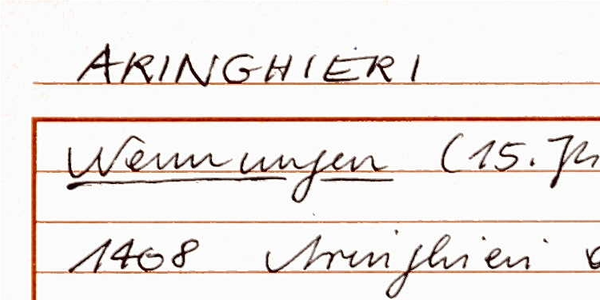 ARINGHIERI
Nennungen (15. Jh
1408 Aringhieri